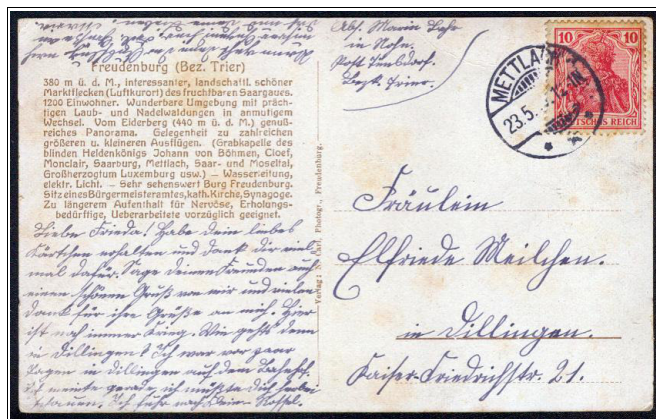 Abs. Maria
in
Post
Bezk. Trier.
10 10
DEUTSCHES REICH
METTLACH
23.5.
Freudenburg (Bez. Trier)
380 m ü. d. M., interessanter, landschaftl. schöner
Marktflecken (Luftkurort) des fruchtbaren Saargaues.
1200 Einwohner. Wunderbare Umgebung mit präch-
tigen Laub- und Nadelwaldungen in anmutigem
Wechsel. Vom Eiderberg (440 m ü. d. M.) genuß-
reiches Panorama. Gelegenheit zu zahlreichen
größeren u. kleineren Ausflügen. (Grabkapelle des
blinden Heldenkönigs Johann von Böhmen, Cloef,
Monclair, Saarburg, Mettlach, Saar- und Moseltal,
Großherzogtum Luxemburg usw.) — Wasserleitung,
elektr. Licht. — Sehr sehenswert Burg Freudenburg.
Sitz eines Bürgermeisteramtes, kath. Kirche, Synagoge.
Zu längerem Aufenthalt für Nervöse, Erholungs-
bedürftige, Ueberarbeitete vorzüglich geeignet.
Liebe Frieda! Habe dein liebes
Kärtchen erhalten und dank dir viel-
mal dafür. Sage deinen Freunden auch
einen schönen Gruß von mir und vielen
Dank für ihre Grüße an mich. Hier
ist noch immer Krieg. Wie geht's denn
in Dillingen? Ich war vor paar
Tagen in Dillingen auf dem Bahnhof.
Ich meinte gerade ich müßte dich
Ich fuhr nach Klein-Rossel.
Verlag: Photogr., Freudenburg.
Fräulein
Elfriede Meilchen.
in Dillingen.
Kaiser-Friedrichstr. 21.